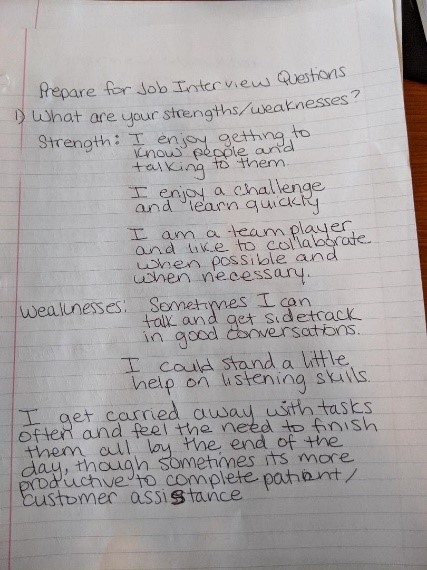 Prepare for Job Interview Questions
1) What are your strengths/weaknesses?
Strength: I enjoy getting to
know people and
talking to them.
I enjoy a challenge
and learn quickly
I am a team player
and like to collaborate
when possible and
when necessary.
Weaknesses: Sometimes I can
talk and get sidetrack
in good conversations.
I could stand a little
help on listening skills.
I get carried away with tasks
often and feel the need to finish
them all by the end of the
day, though sometimes its more
productive to complete patient/
customer assistance